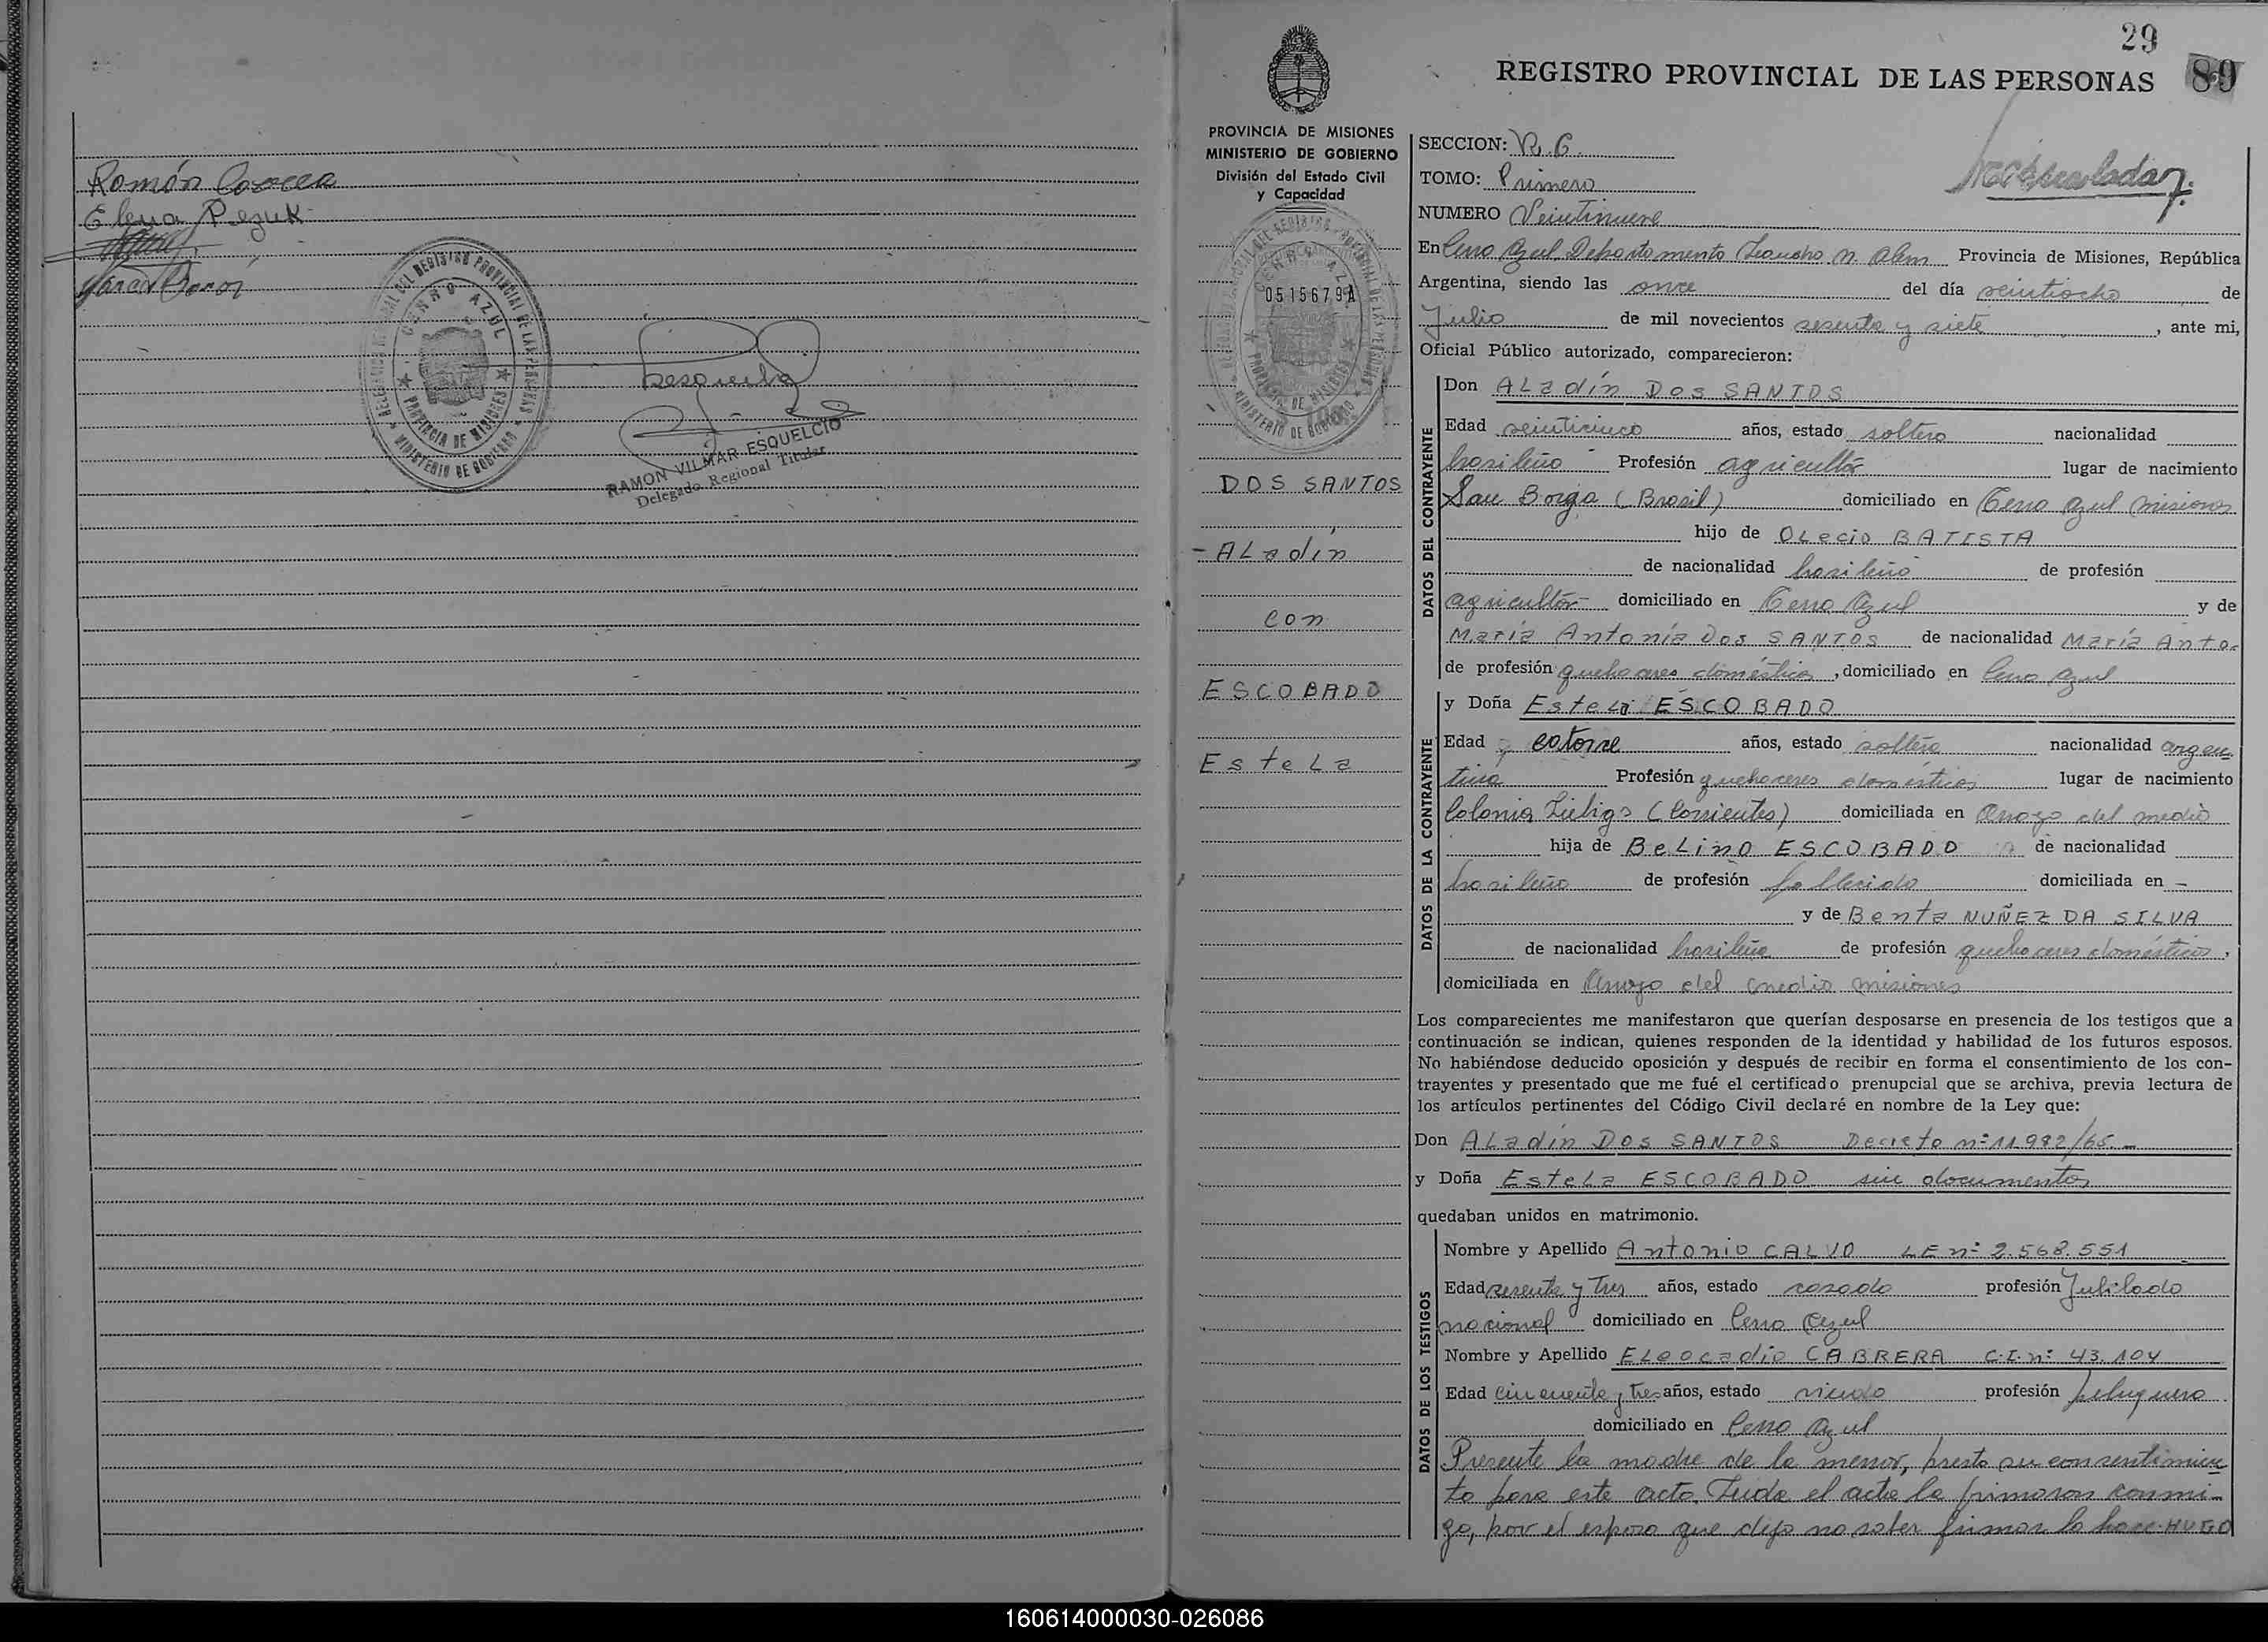 Román Correa
Elena Pezuk
REGISTRO PROVINCIAL DE LAS PERSONAS
CERRO AZUL
PROVINCIA DE MISIONES
MINISTERIO DE GOBIERNO
RAMON VILMAR ESQUELCIO
Delegado Regional Titular
29
REGISTRO PROVINCIAL DE LAS PERSONAS 89
PROVINCIA DE MISIONES
MINISTERIO DE GOBIERNO
División del Estado Civil
y Capacidad
CERRO AZUL
0515679A
PROVINCIA DE MISIONES
MINISTERIO DE GOBIERNO
DOS SANTOS
- ALadín
con
ESCOBADO
EsteLa
SECCION: R.C.
TOMO: Primero
NUMERO Veintinueve
En Cerro Azul Departamento Leandro N. Alem Provincia de Misiones, República
Argentina, siendo las once del día veintiocho de
Julio de mil novecientos sesenta y siete, ante mi,
Oficial Público autorizado, comparecieron:
DATOS DEL CONTRAYENTE
Don ALadín Dos SANTOS
Edad veinticinco años, estado soltero nacionalidad
brasileño Profesión agricultor lugar de nacimiento
San Borga (Brasil) domiciliado en Cerro Azul Misiones
hijo de OLecio BATISTA
de nacionalidad brasileño de profesión
agricultor domiciliado en Cerro Azul y de
María Antonia Dos SANTOS de nacionalidad María Anto-
de profesión quehaceres domésticos, domiciliado en Cerro Azul
DATOS DE LA CONTRAYENTE
y Doña EsteLa ESCOBADO
Edad catorce años, estado soltera nacionalidad argen-
tina Profesión quehaceres domésticos lugar de nacimiento
Colonia Liebigs (Corrientes) domiciliada en Arroyo del medio
hija de BeLino ESCOBADO de nacionalidad
brasileño de profesión fallecido domiciliada en -
y de Benta NUÑEZ DA SILVA
de nacionalidad brasileña de profesión quehaceres domésticos,
domiciliada en Arroyo del medio misiones
Los comparecientes me manifestaron que querían desposarse en presencia de los testigos que a
continuación se indican, quienes responden de la identidad y habilidad de los futuros esposos.
No habiéndose deducido oposición y después de recibir en forma el consentimiento de los con-
trayentes y presentado que me fué el certificado prenupcial que se archiva, previa lectura de
los artículos pertinentes del Código Civil declaré en nombre de la Ley que:
Don ALadín Dos SANTOS Decreto n:11.982/65.-
y Doña EsteLa ESCOBADO sin documentos
quedaban unidos en matrimonio.
DATOS DE LOS TESTIGOS
Nombre y Apellido Antonio CALVO LE n: 2.568.551
Edad sesenta y tres años, estado casado profesión Jubilado
nacional domiciliado en Cerro Azul
Nombre y Apellido ELeocadio CABRERA C.I. n: 43.104
Edad cincuenta y tres años, estado viudo profesión peluquero
domiciliado en Cerro Azul
Presente la madre de la menor, presta su consentimien-
to para este acto. Leída el acta la firmaron conmi-
go, por el esposo que dijo no saber firmar lo hace HUGO
160614000030-026086